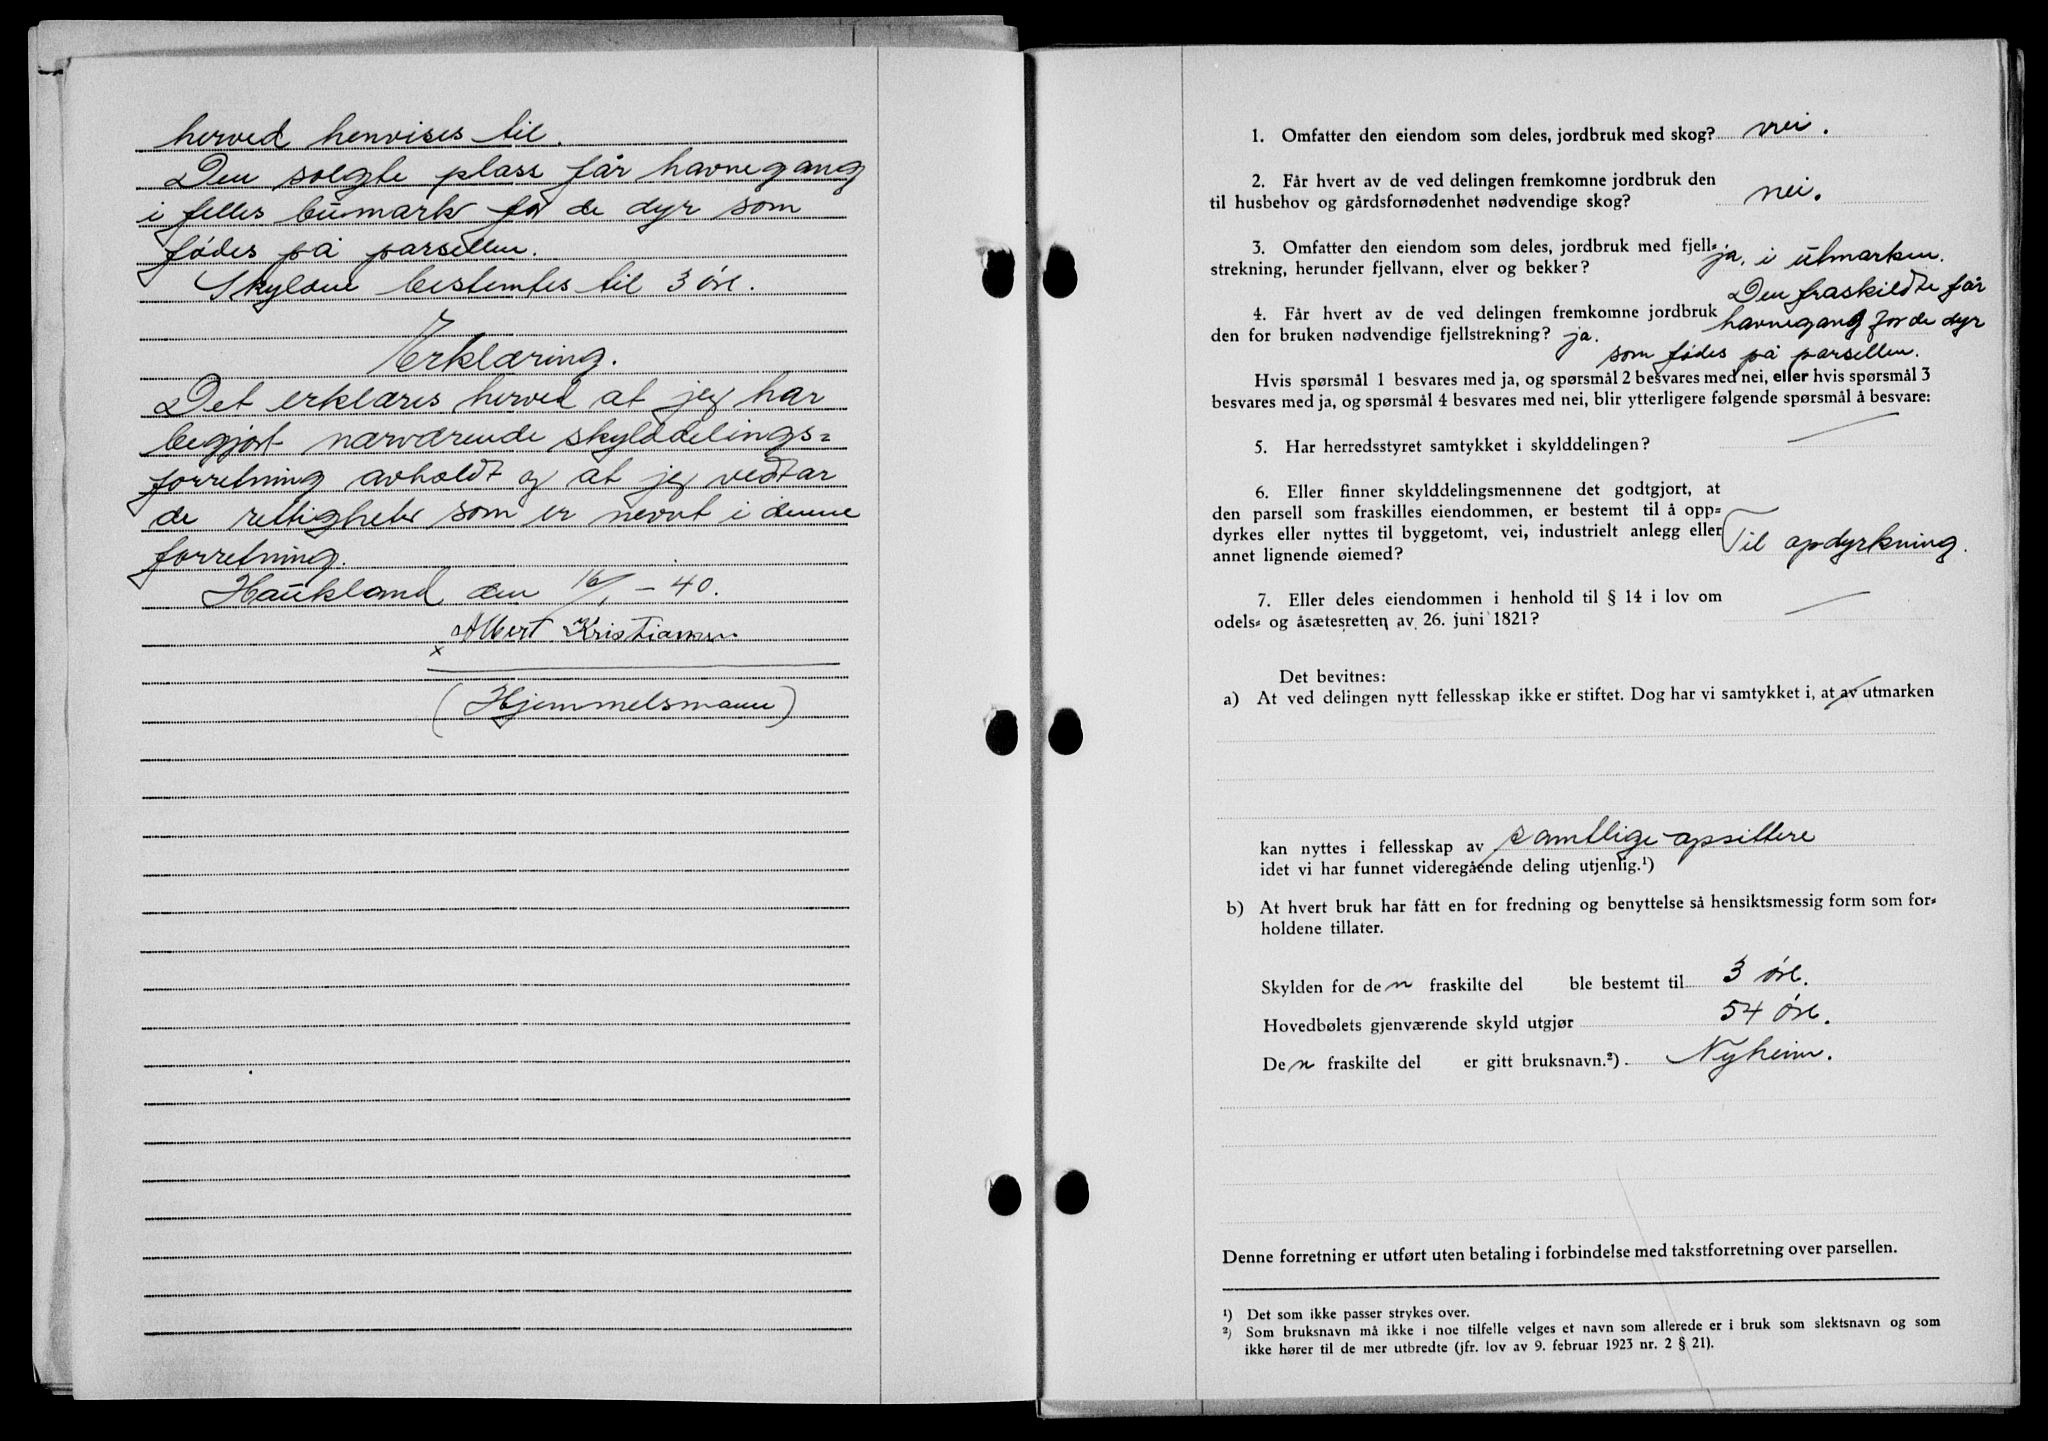 herved henvises til.
Den solgte plass får havnegang
i felles bumark for de dyr som
fødes på parsellen.
Skylden bestemtes til 3 øre.
Erklæring.
Det erklæres herved at jeg har
begjært nærværende skylddelings=
forretning avholdt og at jeg vedtar
de rettigheter som er nevnt i denne
forretning.
Haukland den 16/1 - 40.
x Albert Kristiansen
(Hjemmelsmann)
1. Omfatter den eiendom som deles, jordbruk med skog? nei.
2. Får hvert av de ved delingen fremkomne jordbruk den
til husbehov og gårdsfornødenhet nødvendige skog? nei.
3. Omfatter den eiendom som deles, jordbruk med fjell=
strekning, herunder fjellvann, elver og bekker? ja, i utmarken.
Den fraskildte får
4. Får hvert av de ved delingen fremkomne jordbruk havnegang for de dyr
den for bruken nødvendige fjellstrekning? ja. som fødes på parsellen.
Hvis spørsmål 1 besvares med ja, og spørsmål 2 besvares med nei, eller hvis spørsmål 3
besvares med ja, og spørsmål 4 besvares med nei, blir ytterligere følgende spørsmål å besvare:
5. Har herredsstyret samtykket i skylddelingen?
6. Eller finner skylddelingsmennene det godtgjort, at
den parsell som fraskilles eiendommen, er bestemt til å opp=
dyrkes eller nyttes til byggetomt, vei, industrielt anlegg eller
annet lignende øiemed? Til opdyrkning.
7. Eller deles eiendommen i henhold til § 14 i lov om
odels= og åsætesretten av 26. juni 1821?
Det bevitnes:
a) At ved delingen nytt fellesskap ikke er stiftet. Dog har vi samtykket i, at av utmarken
kan nyttes i fellesskap av samtlige opsittere
idet vi har funnet videregående deling utjenlig.¹)
b) At hvert bruk har fått en for fredning og benyttelse så hensiktsmessig form som for=
holdene tillater.
Skylden for den fraskilte del ble bestemt til 3 øre.
Hovedbølets gjenværende skyld utgjør 54 øre.
Den fraskilte del er gitt bruksnavn.²) Nyheim.
Denne forretning er utført uten betaling i forbindelse med takstforretning over parsellen.
¹) Det som ikke passer strykes over.
²) Som bruksnavn må ikke i noe tilfelle velges et navn som allerede er i bruk som slektsnavn og som
ikke hører til de mer utbredte (jfr. lov av 9. februar 1923 nr. 2 § 21).